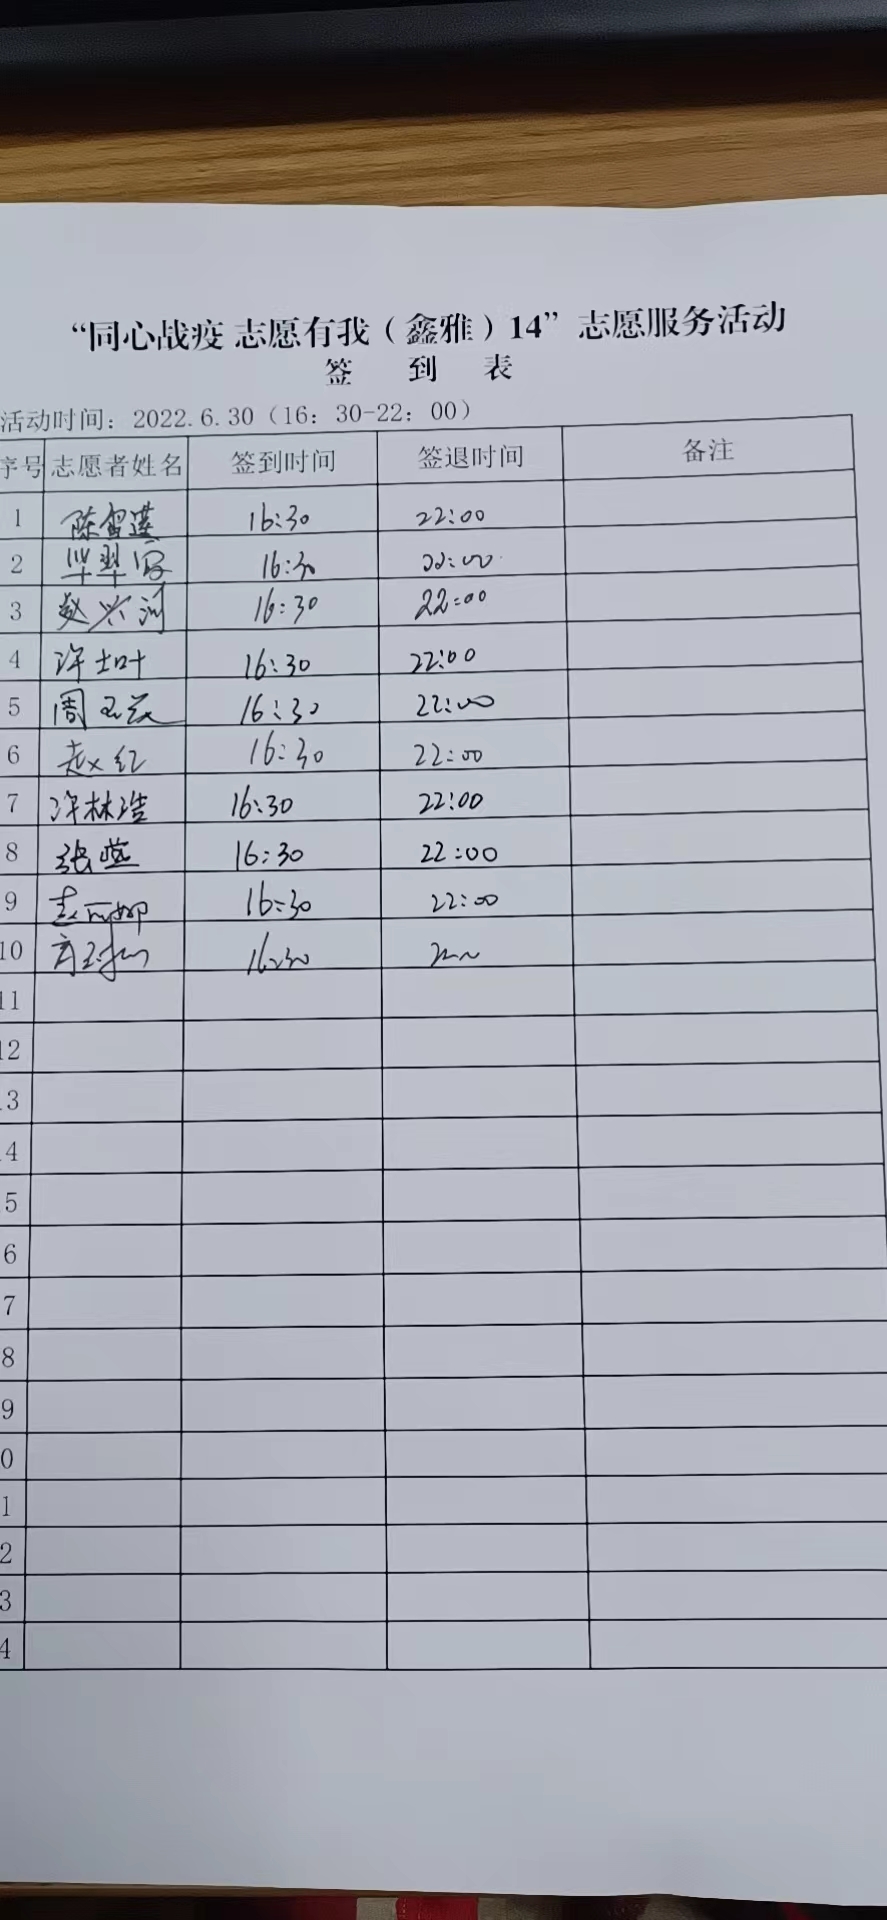 “同心战疫 志愿有我（鑫雅）14”志愿服务活动
签 到 表
活动时间：2022.6.30（16：30-22：00）
序号 志愿者姓名 签到时间 签退时间 备注
1 陈 16:30 22:00
2 16:30 22:00
3 赵兴润 16:30 22:00
4 许士叶 16:30 22:00
5 周玉 16:30 22:00
6 赵红 16:30 22:00
7 许林浩 16:30 22:00
8 张燕 16:30 22:00
9 16:30 22:00
10 16:30
11
12
3
4
5
6
7
8
9
0
1
2
3
4